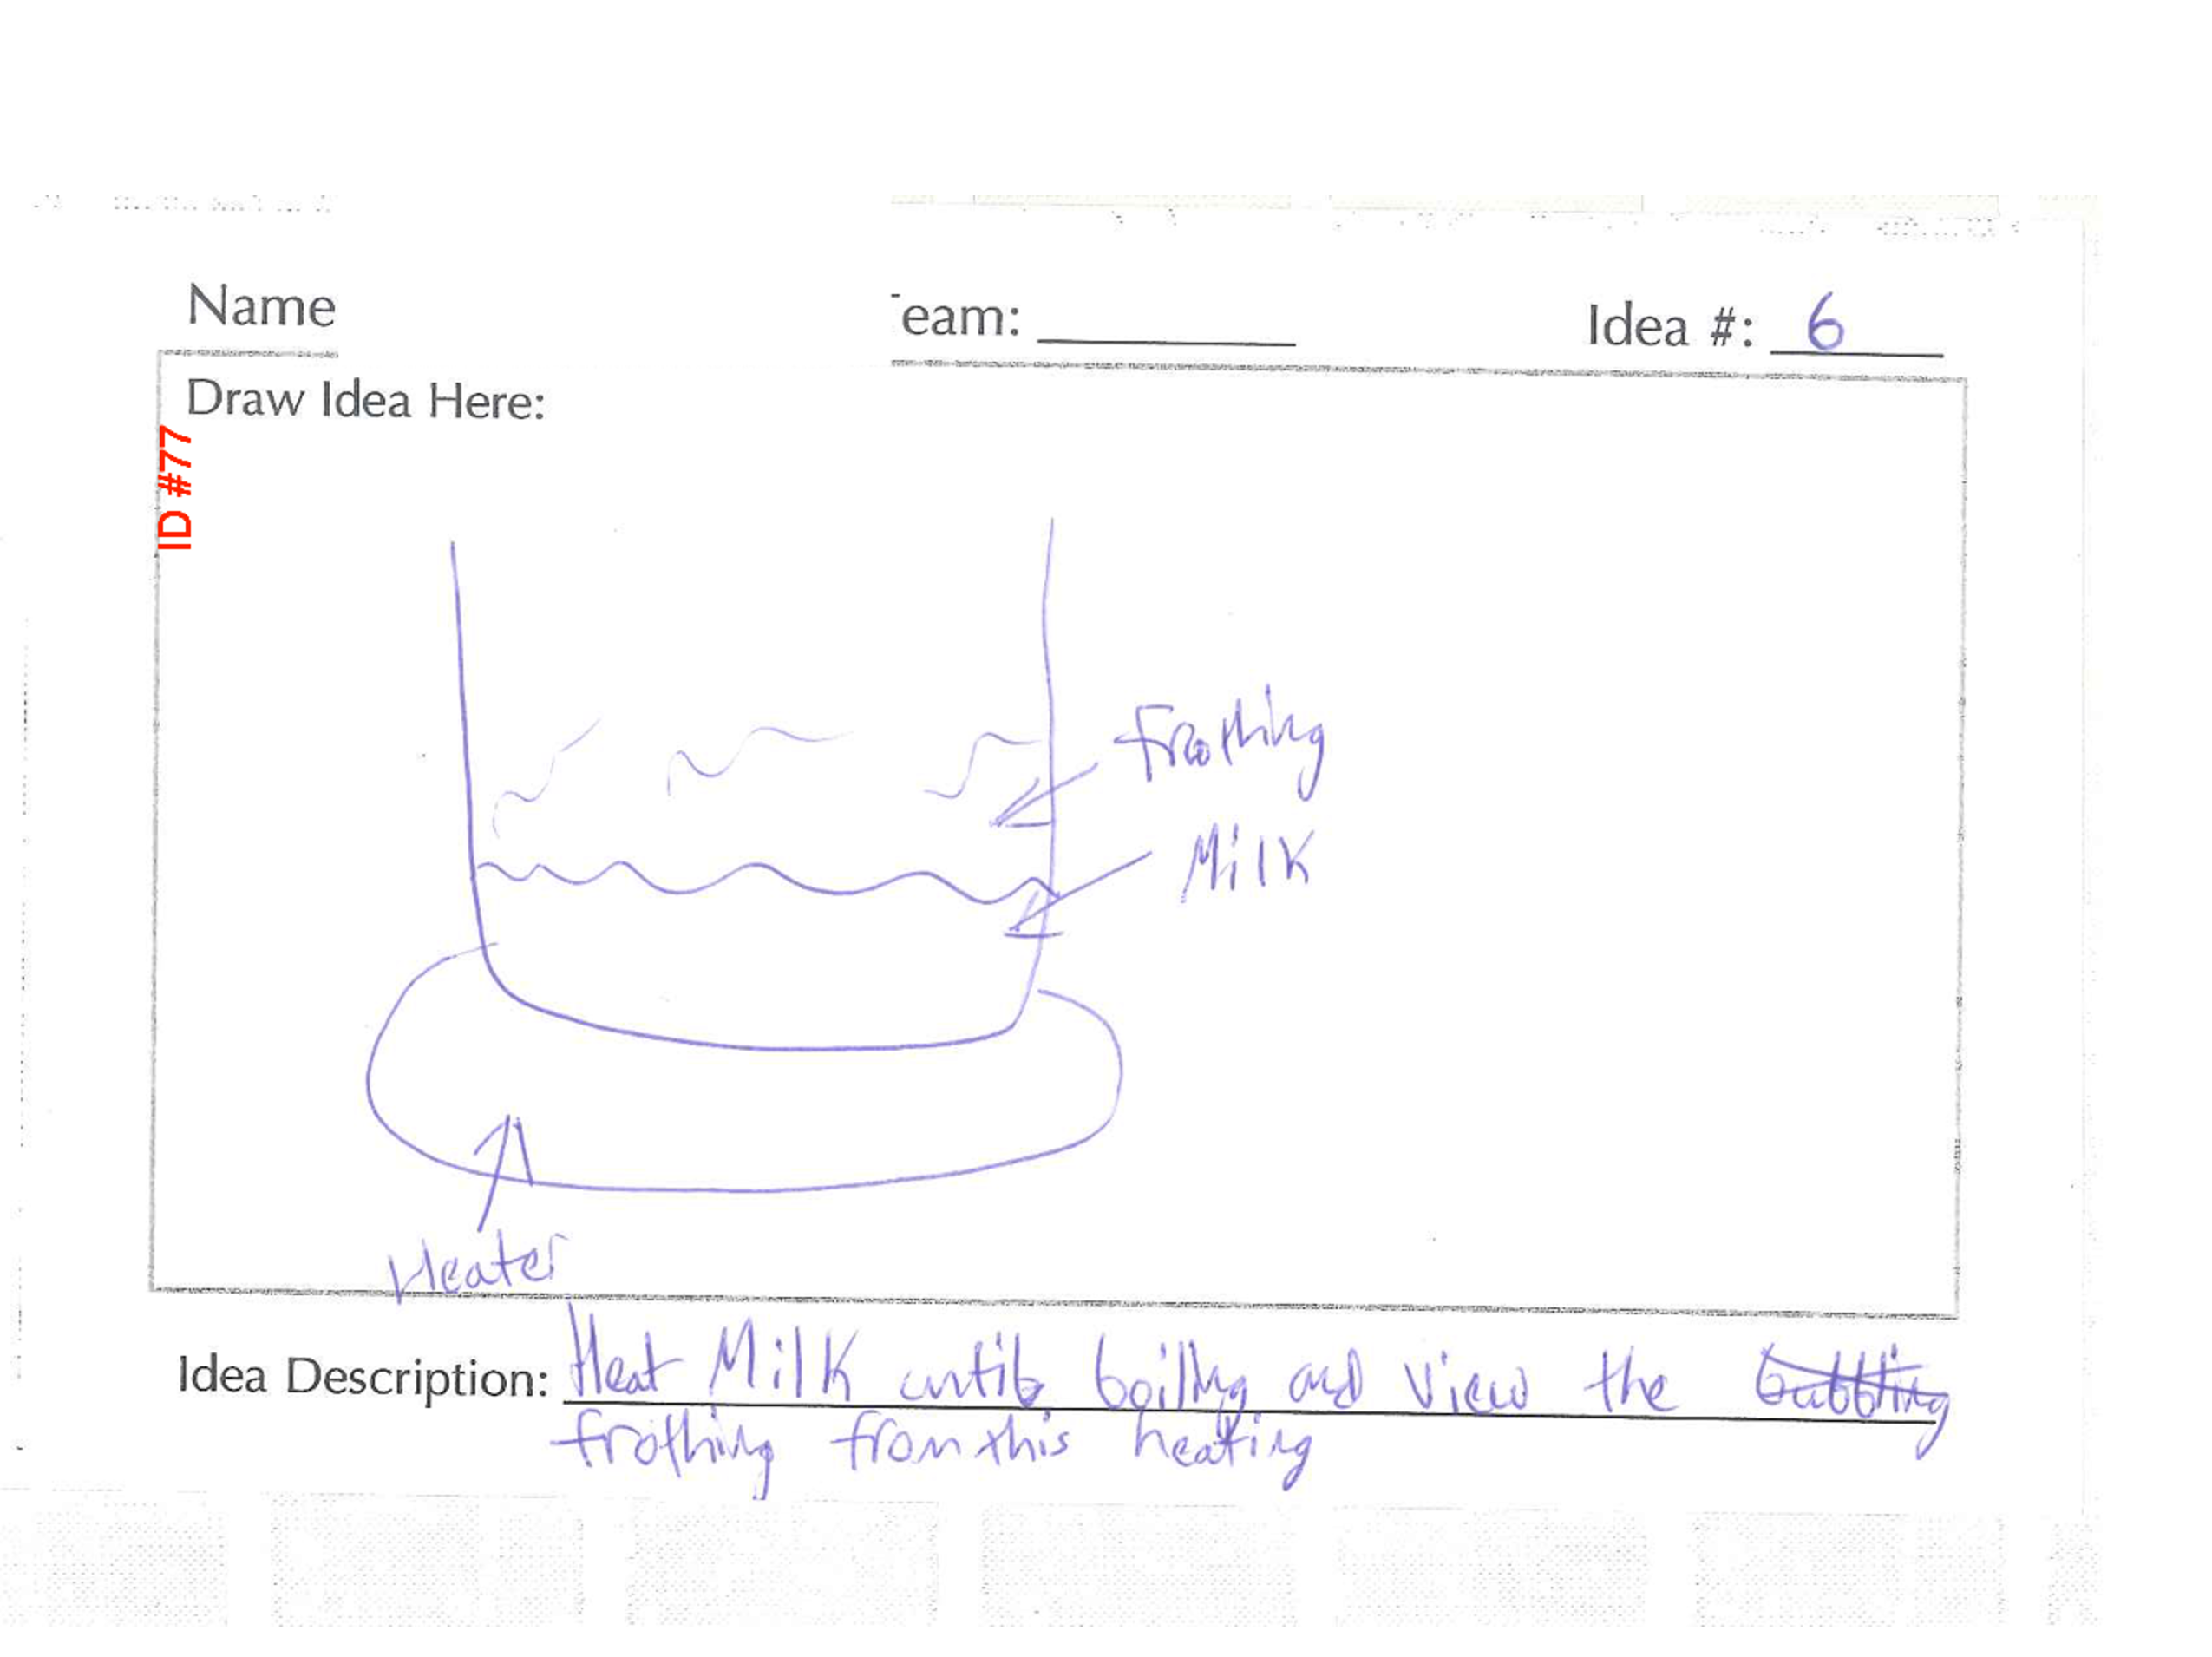 Name
eam:
Idea #: 6
Draw Idea Here:
ID #77
Frothing
Milk
Heater
Idea Description: Heat Milk until boiling and view the bubbling
frothing from this heating